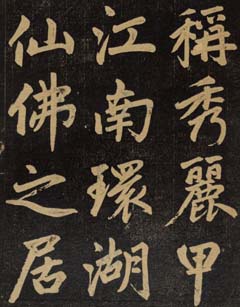 稱秀麗甲
江南環湖
仙佛之居